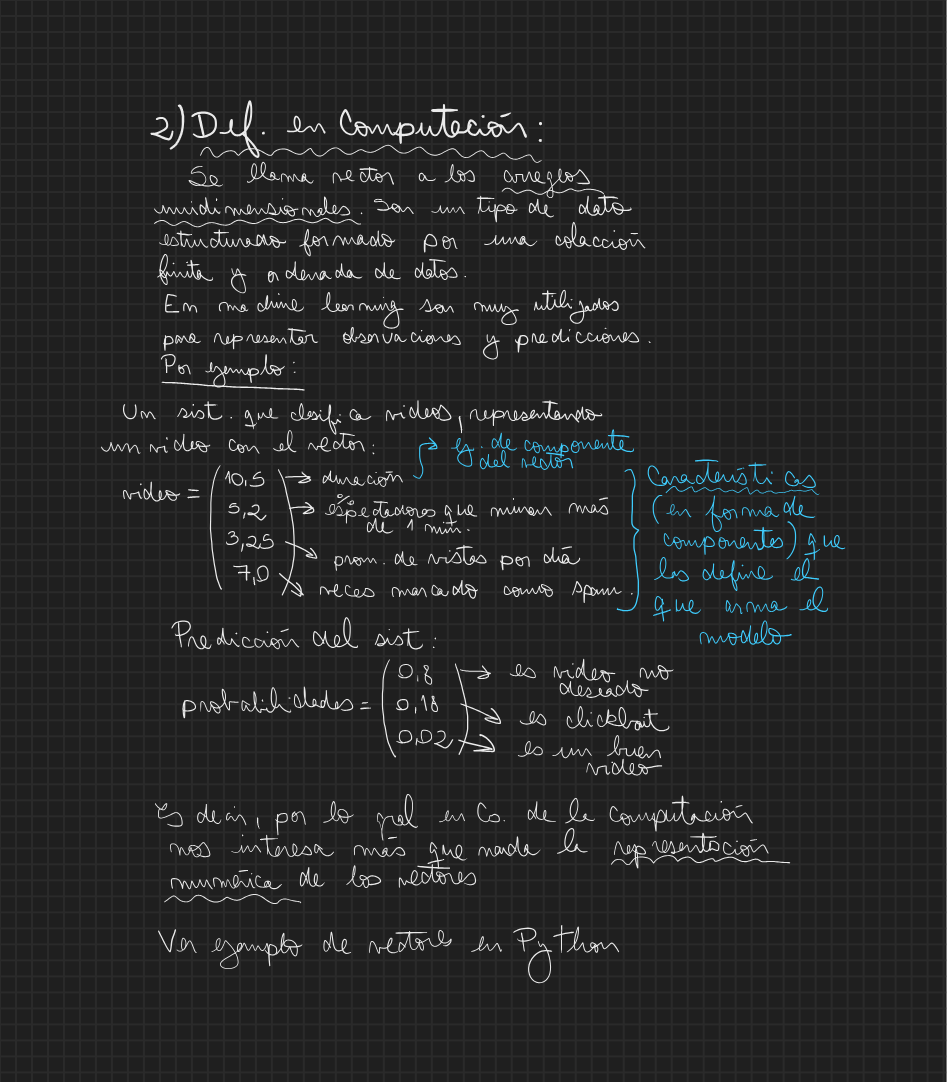 2) Def. en Computación:
Se llama vector a los arreglos
unidimensionales. Son un tipo de dato
estructurado formado por una colacción
finita y ordenada de datos.
En machine learning son muy utilizados
para representar observaciones y predicciones.
Por ejemplo:
Un sist. que clasifica videos, representando
un video con el vector:
ej. de componente
del vector
video =
10,5 → duración
5,2 → % espectadores que miran más
de 1 min.
3,25 → prom. de vistas por día
7,0 → veces marcado como spam.
Características
(en forma de
componentes) que
las define el
que arma el
modelo
Predicción del sist:
probabilidades =
0,8 → es video no
deseado
0,18 → es clickbait
0,02 → es un buen
video
Es decir, por lo gral en Cs. de la computación
nos interesa más que nada la representación
numérica de los vectores
Ver ejemplo de vectores en Python